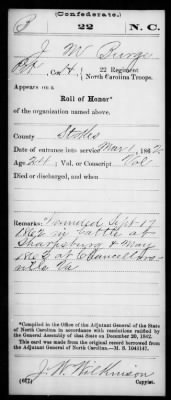 (Confederate.)
B 22 N. C.
J. W. Burge
Pvt, Co. H, 22 Regiment
North Carolina Troops.
Appears on a
Roll of Honor*
of the organization named above.
County Stokes
Date of entrance into service Mar 1, 1862
Age 24 ; Vol. or Conscript Vol
Died or discharged, and when
Remarks: Wounded Sept 17
1862 in battle at
Sharpsburg & May
1863 at Chancellors
ville Va
*Compiled in the Office of the Adjutant General of the State
of North Carolina in accordance with resolutions ratified
by the General Assembly of that State on December 20, 1862.
This card was made from the original record borrowed
from the Adjutant General of North Carolina.—M. S. 1043147.
J. W. Wilkinson
(667) Copyist.